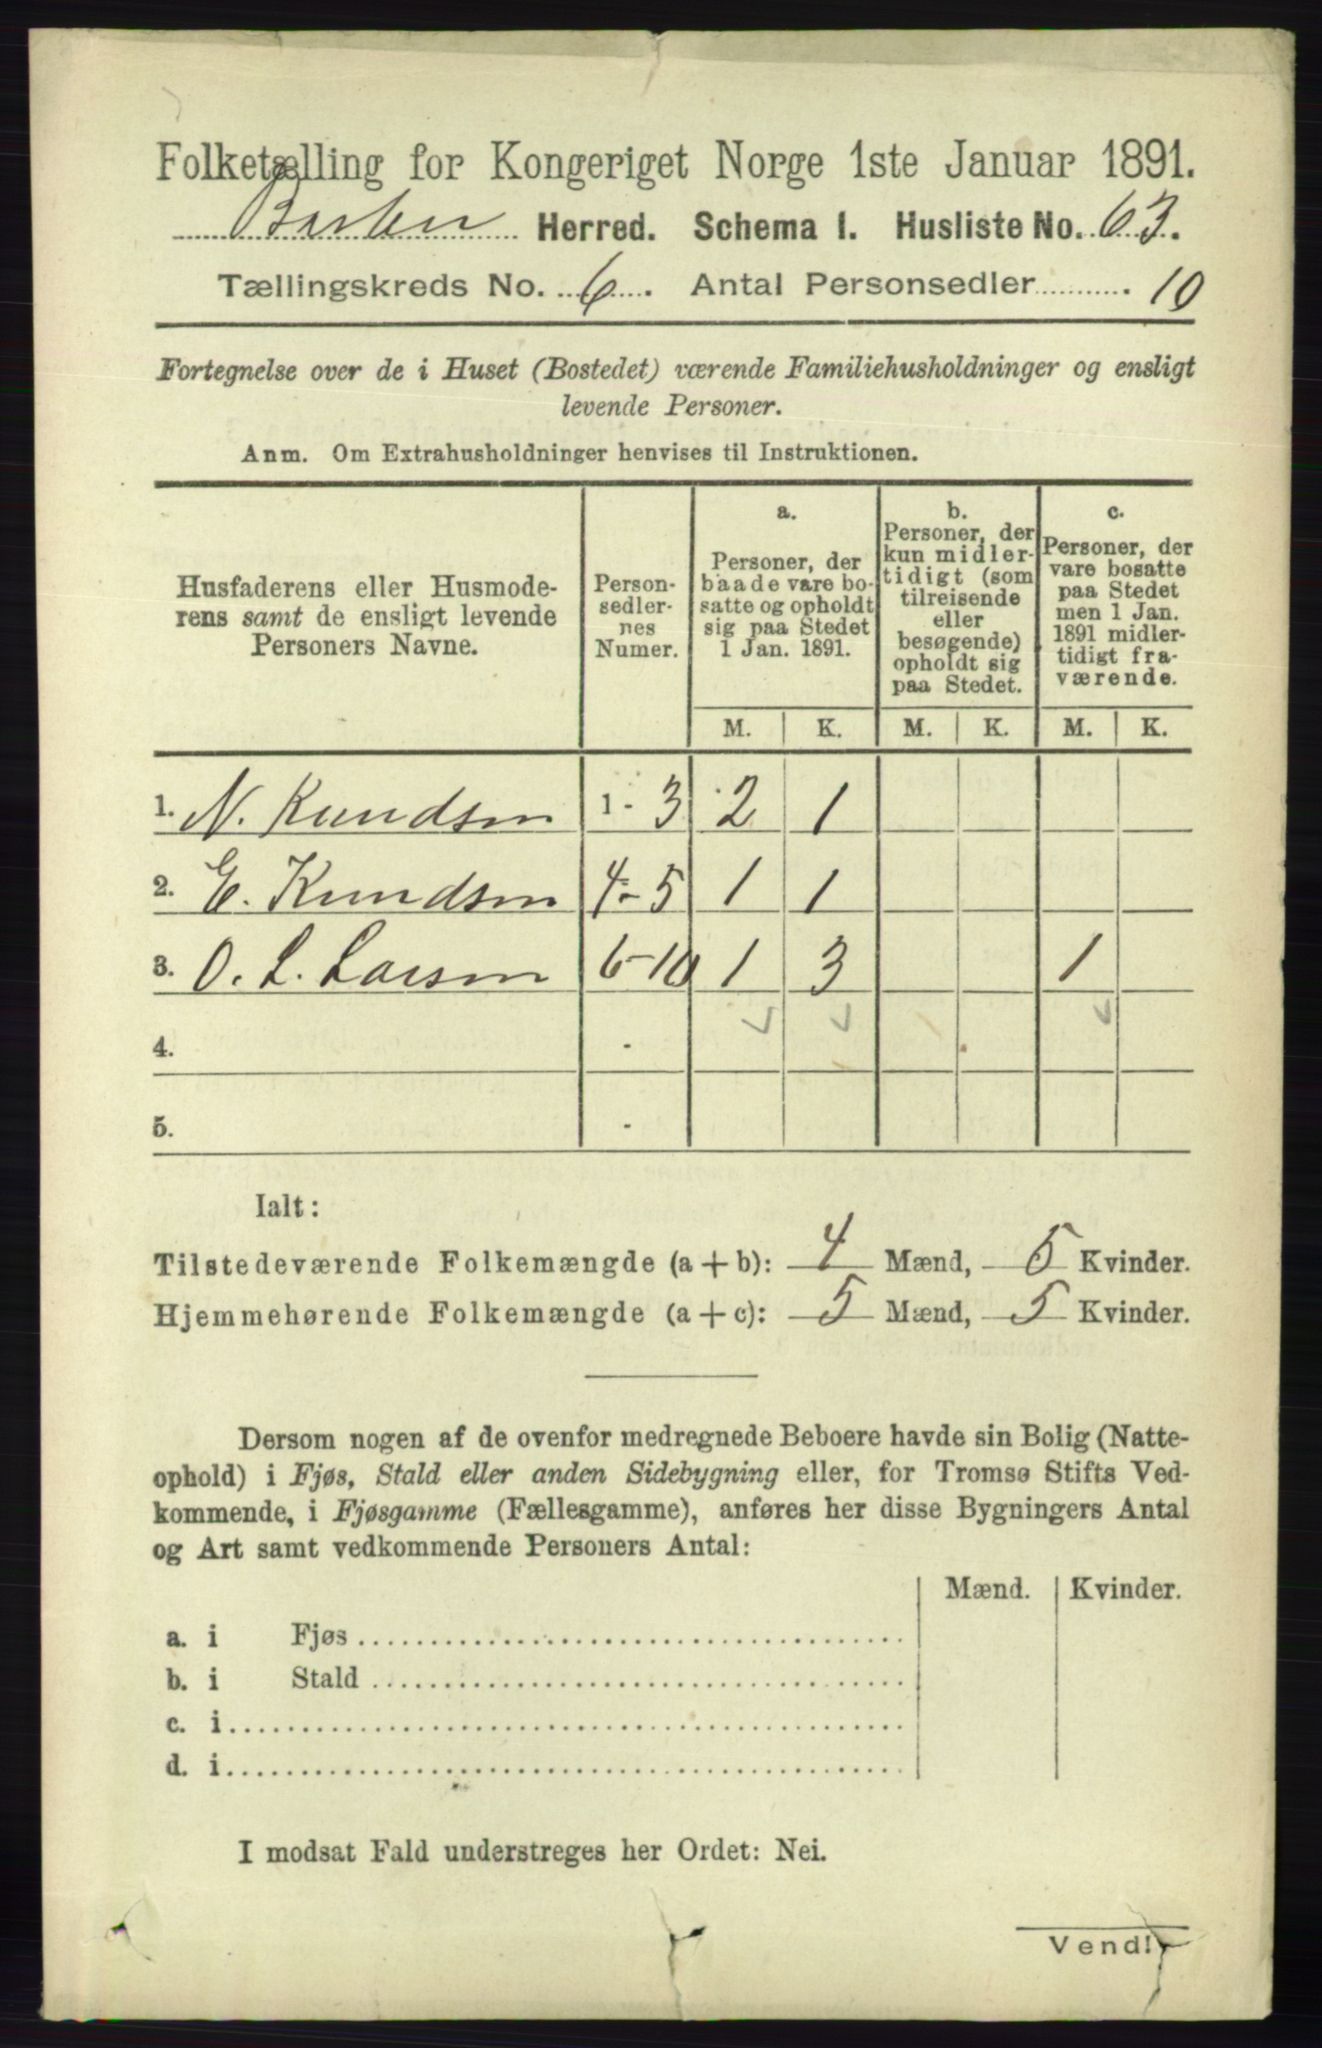 Folketælling for Kongeriget Norge 1ste Januar 1891.
Herred. Schema I. Husliste No. 63.
Tællingskreds No. 6. Antal Personsedler 10
Fortegnelse over de i Huset (Bostedet) værende Familiehusholdninger og ensligt
levende Personer.
Anm. Om Extrahusholdninger henvises til Instruktionen.
Husfaderens eller Husmode-
rens samt de ensligt levende
Personers Navne.
Person-
sedler-
nes
Numer.
a.
Personer, der
baade vare bo-
satte og opholdt
sig paa Stedet
1 Jan. 1891.
b.
Personer, der
kun midler-
tidigt (som
tilreisende
eller
besøgende)
opholdt sig
paa Stedet.
c.
Personer, der
vare bosatte
paa Stedet
men 1 Jan.
1891 midler-
tidigt fra-
værende.
M. K. M. K. M. K.
1. N. Knudsen 1-3 2 1
2. E. Knudsen 4-5 1 1
3. O. L. Larsen 6-10 1 3 1
4. -
5. -
Ialt:
Tilstedeværende Folkemængde (a+b): 4 Mænd, 5 Kvinder.
Hjemmehørende Folkemængde (a+c): 5 Mænd, 5 Kvinder.
Dersom nogen af de ovenfor medregnede Beboere havde sin Bolig (Natte-
ophold) i Fjøs, Stald eller anden Sidebygning eller, for Tromsø Stifts Ved-
kommende, i Fjøsgamme (Fællesgamme), anføres her disse Bygningers Antal
og Art samt vedkommende Personers Antal:
Mænd. Kvinder.
a. i Fjøs
b. i Stald
c. i
d. i
I modsat Fald understreges her Ordet: Nei.
Vend!